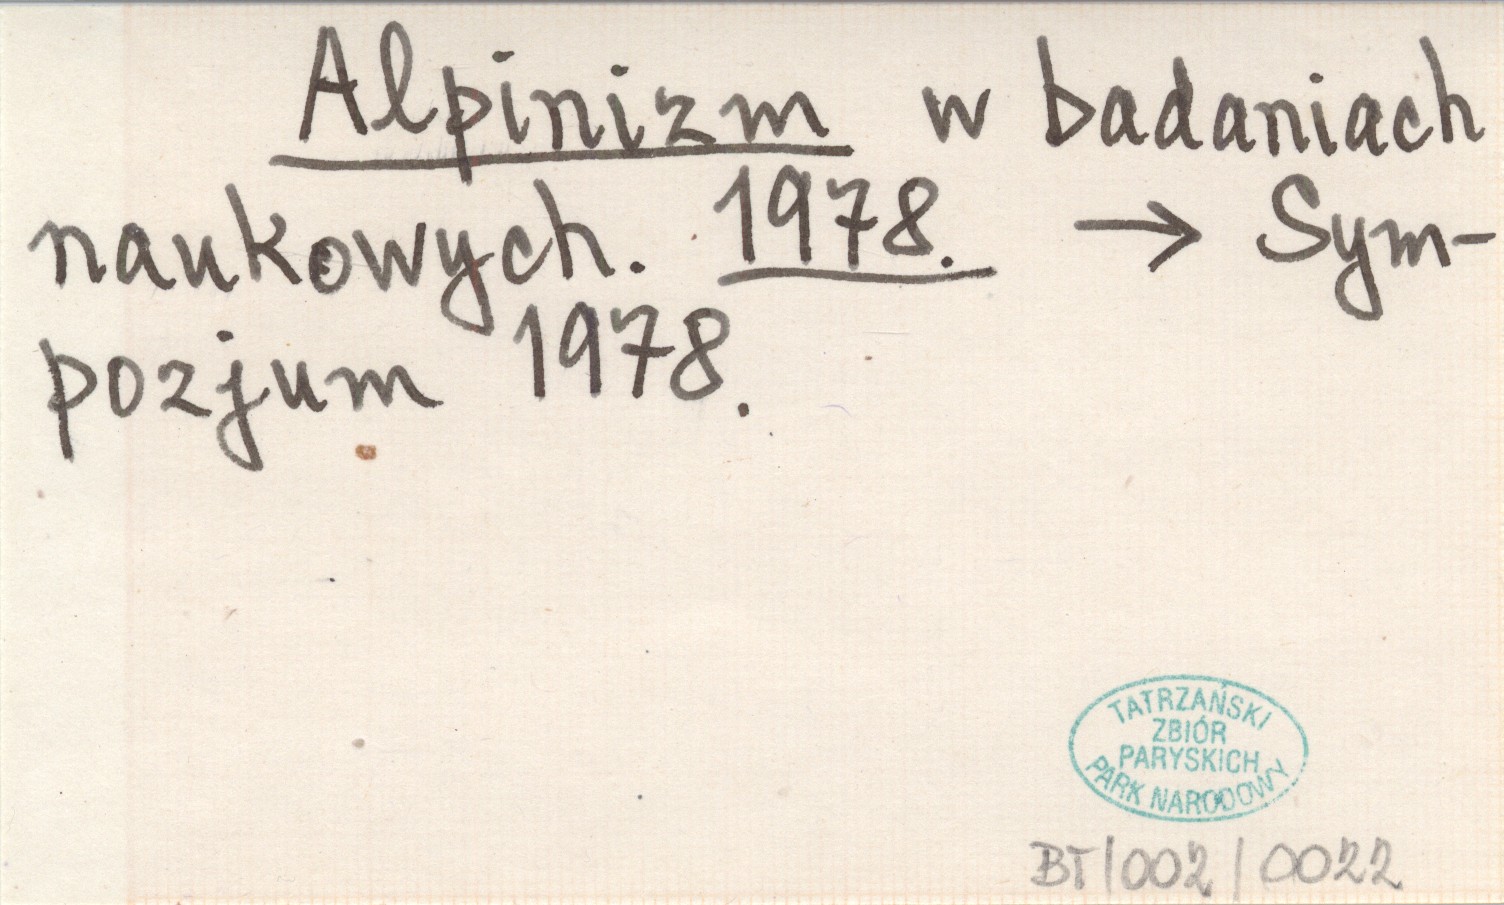 Alpinizm w badaniach
naukowych. 1978. → Sym-
pozjum 1978.
TATRZAŃSKI
ZBIÓR
PARYSKICH
PARK NARODOWY
BT/002/0022